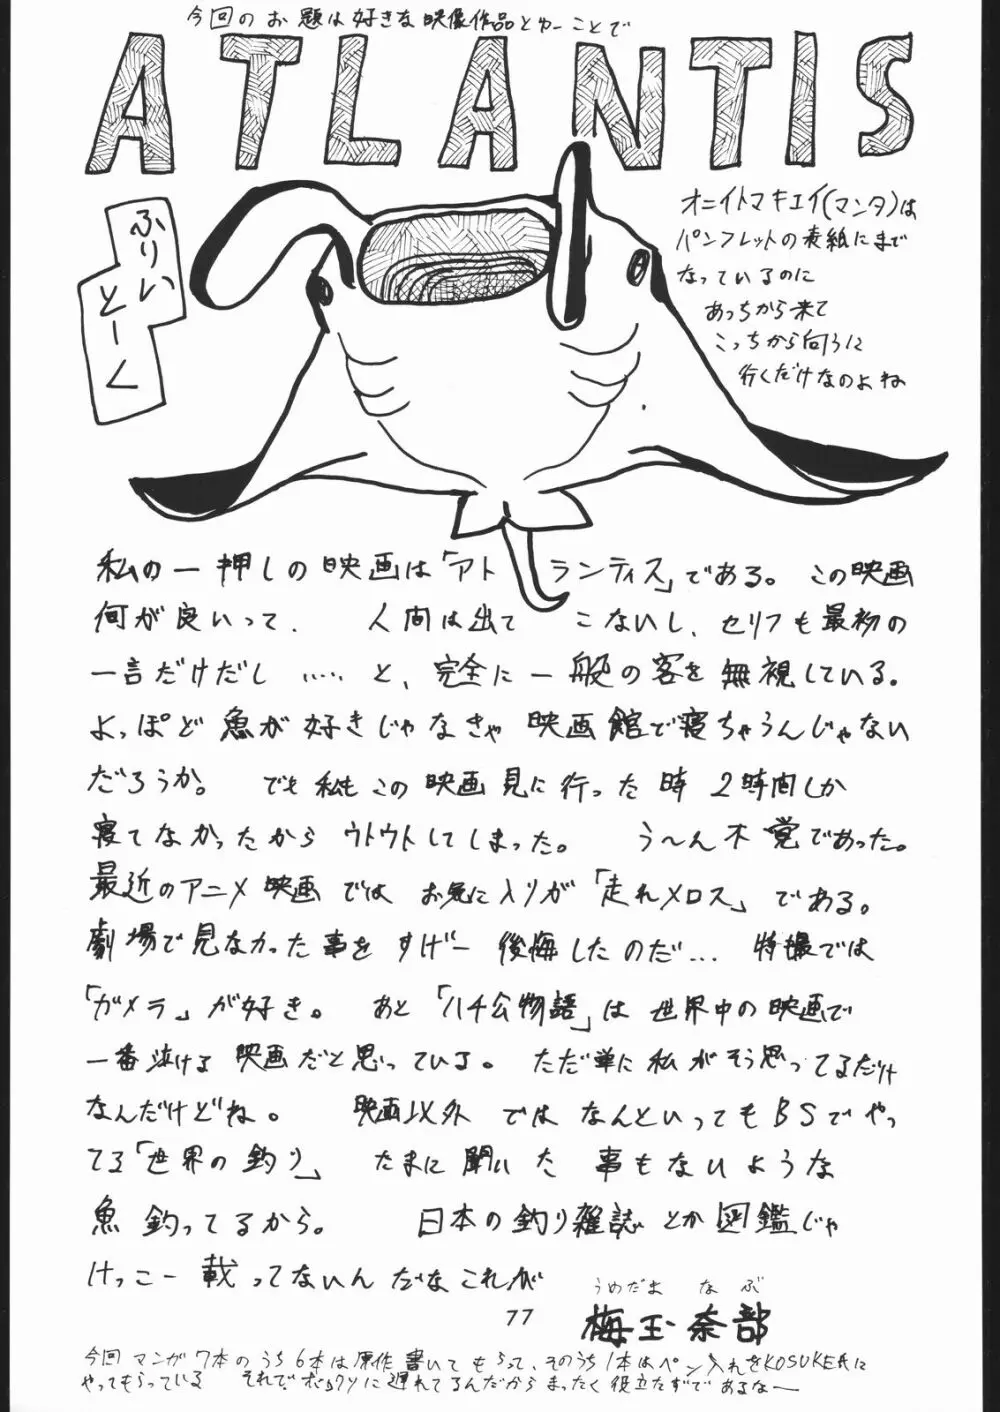 今回のお題は好きな映像作品とゆーことで
ATLANTIS
ふりい
とーく
オニイトマキエイ(マンタ)は
パンフレットの表紙にまで
なっているのに
あっちから来て
こっちから向うに
行くだけなのよね
私の一押しの映画は「アトランティス」である。この映画
何が良いって、人間は出てこないし、セリフも最初の
一言だけだし……と、完全に一般の客を無視している。
よっぽど魚が好きじゃなきゃ映画館で寝ちゃうんじゃない
だろうか。でも私もこの映画見に行った時2時間しか
寝てなかったからウトウトしてしまった。う〜ん不覚であった。
最近のアニメ映画ではお気に入りが「走れメロス」である。
劇場で見なかった事をすげー後悔したのだ…特撮では
「ガメラ」が好き。あと「ハチ公物語」は世界中の映画で
一番泣ける映画だと思っている。ただ単に私がそう思ってるだけ
なんだけどね。映画以外ではなんといってもBSでやっ
てる「世界の釣り」たまに聞いた事もないような
魚釣ってるから。日本の釣り雑誌とか図鑑じゃ
けっこー載ってないんだなこれが
うめだま なぶ
梅玉奈部
77
今回マンガ7本のうち6本は原作書いてもらって、そのうち1本はペン入れをKOSUKE氏に
やってもらっている それでボクソに遅れてるんだからまったく役立たずであるなー